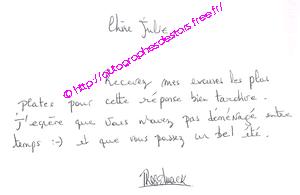 Chère Julie
©http://autographesdestars.free.fr/
Recevez mes excuses les plus
plates pour cette réponse bien tardive.
J'espère que vous n'avez pas déménagé entre
temps :-) et que vous passez un bel été.